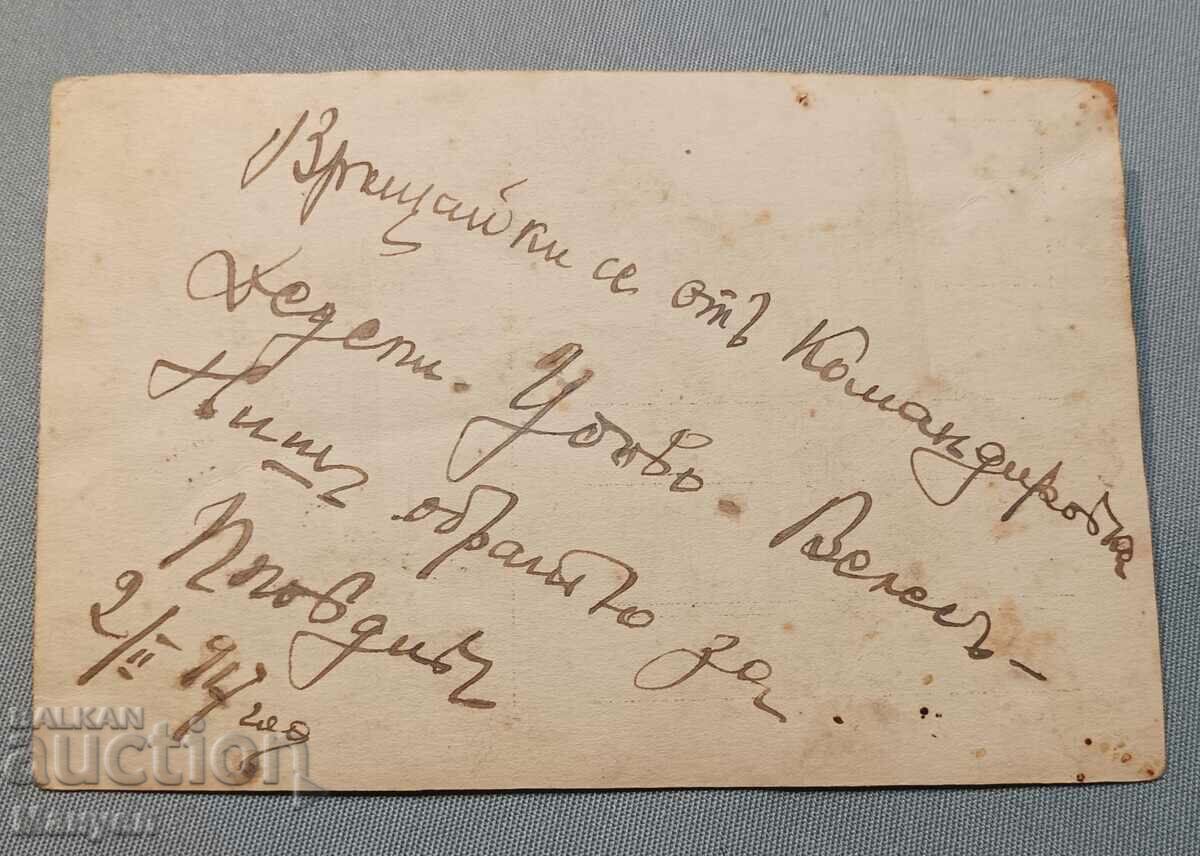 Връщайки се отъ Командировка
Усково - Велесъ -
Нишъ обратно за
Пловдивъ
2/II 917 год
BALKAN
auction
Manyen